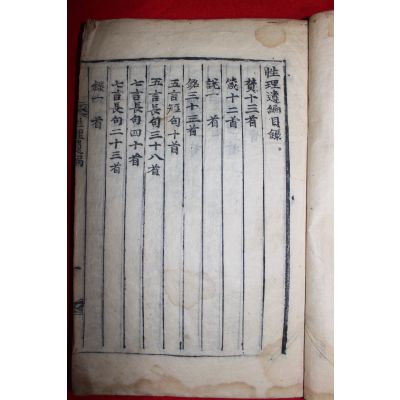 性理遺編目錄
賛十三首
箴十二首
說一首
銘二十三首
五言短句十首
五言長句三十八首
七言長句四十首
七言長句二十三首
錄一首